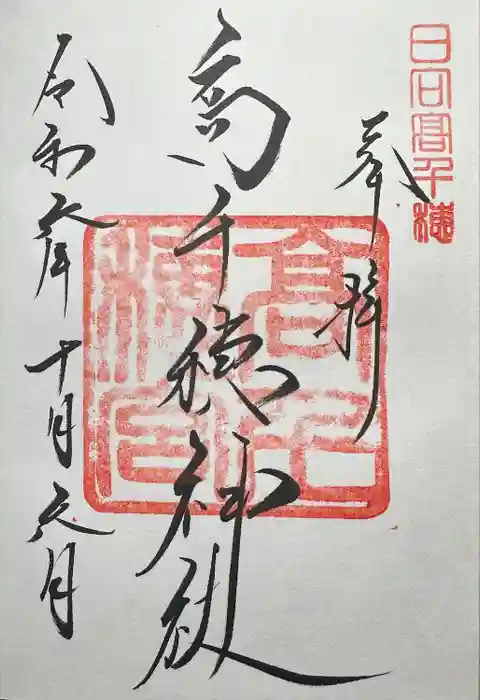 日向高千穂
奉拝
高千穂神社
令和六年十月
高千
穂宮